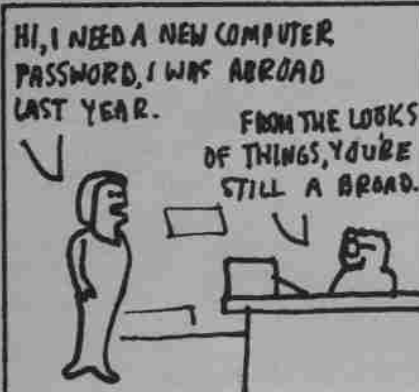 HI, I NEED A NEW COMPUTER
PASSWORD, I WAS ABROAD
LAST YEAR.
FROM THE LOOKS
OF THINGS, YOU'RE
STILL A BROAD.